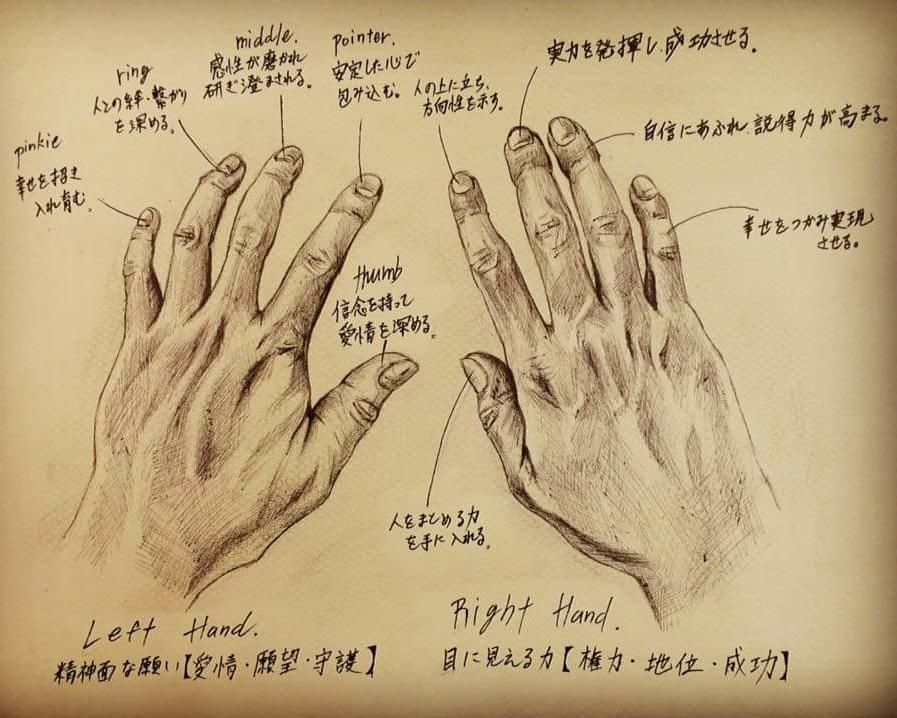 pinkie
幸せを招き
入れ育む。
ring
人との絆・繋がり
を深める。
middle.
感性が磨かれ
研ぎ澄まされる。
pointer.
安定した心で
包み込む。
thumb
信念を持って
愛情を深める。
人の上に立ち、
方向性を示す。
実力を発揮し成功させる。
自信にあふれ説得力が高まる。
幸せをつかみ実現
させる。
人をまとめる力
を手に入れる。
Left Hand.
精神面な願い【愛情・願望・守護】
Right Hand.
目に見える力【権力・地位・成功】